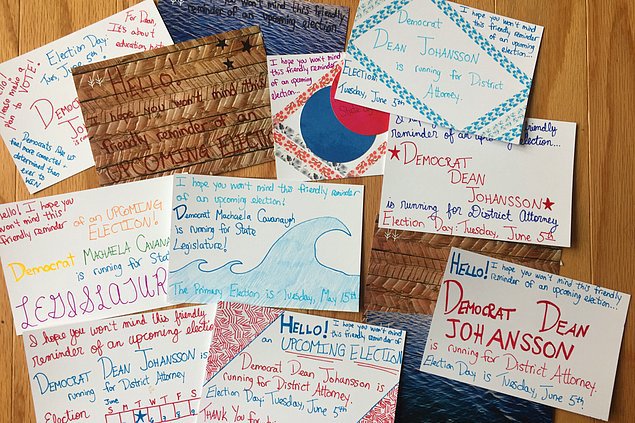 For Dean,
It's about
education, not
Election Day:
Tues, June 5th
please make a
plan to VOTE!
DEMOCRAT
JO
Democrats like us
feel more connected +
determined than
ever to
WIN
I hope you won't mind this friendly
reminder of an upcoming election
HELLO!
I hope you won't mind this
friendly reminder of an
UPCOMING ELECTION
I hope you won't mind
this friendly reminder
of an upcoming
election
I hope you won't mind
this friendly reminder
of an upcoming
election...
Democrat
DEAN JOHANSSON
is running for District
Attorney.
ELECTION
Tuesday, June 5th
friendly
reminder of an upcoming election...
DEMOCRAT
DEAN
JOHANSSON
is running for District Attorney
Election Day: Tuesday, June 5th
Hello! I hope you
won't mind this
friendly reminder
of an UPCOMING
ELECTION!
Democrat MACHAELA CAVANA
is running for Stat
LEGISLATUR
I hope you won't mind this friendly reminder
of an upcoming election!
Democrat Machaela Cavanaugh
is running for State
Legislature!
The Primary Election is Tuesday, May 15th
HELLO! I hope you won't mind this friendly
reminder of an upcoming election...
DEMOCRAT DEAN
JOHANSSON
is running for District Attorney.
Election Day is Tuesday, June 5th.
I hope you won't mind this friendly
reminder of an upcoming election
DEMOCRAT DEAN JOHANSSON is
running for District Attorney
Election
June
S M T W T F S
HELLO! I hope you won't mind
this friendly
reminder of
an UPCOMING ELECTION
Democrat Dean Johansson is
running for District Attorney.
Election Day: Tuesday, June 5th!
THANK YOU for